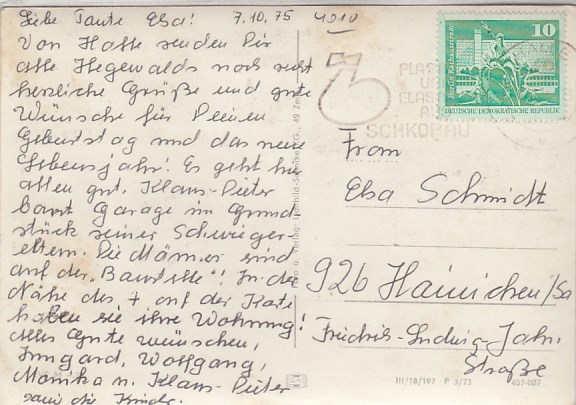 Liebe Tante Elsa! 7.10.75 4010
Von Halle senden Dir
alle Hegewalds noch recht
herzliche Grüße und gute
Wünsche für Deinen
Geburtstag und das neue
Lebensjahr! Es geht hier
allen gut. Klaus-Peter
baut Garage im Grund-
stück seiner Schwieger-
eltern. Die Männer sind
auf der "Baustelle"! In der
Nähe des 7 auf der Karte
haben sie ihre Wohnung!
Alles Gute wünschen,
Irmgard, Wolfgang,
Monika u. Klaus-Peter
und die Kinder.
10
Berlin
DEUTSCHE DEMOKRATISCHE REPUBLIK
PLAS
U
ELAS
A
SCHKOPAU
Frau
Elsa Schmidt
926 Hainichen/Sa
Friedrich-Ludwig-Jahn-
Straße
III/18/197 P 3/73 657-027